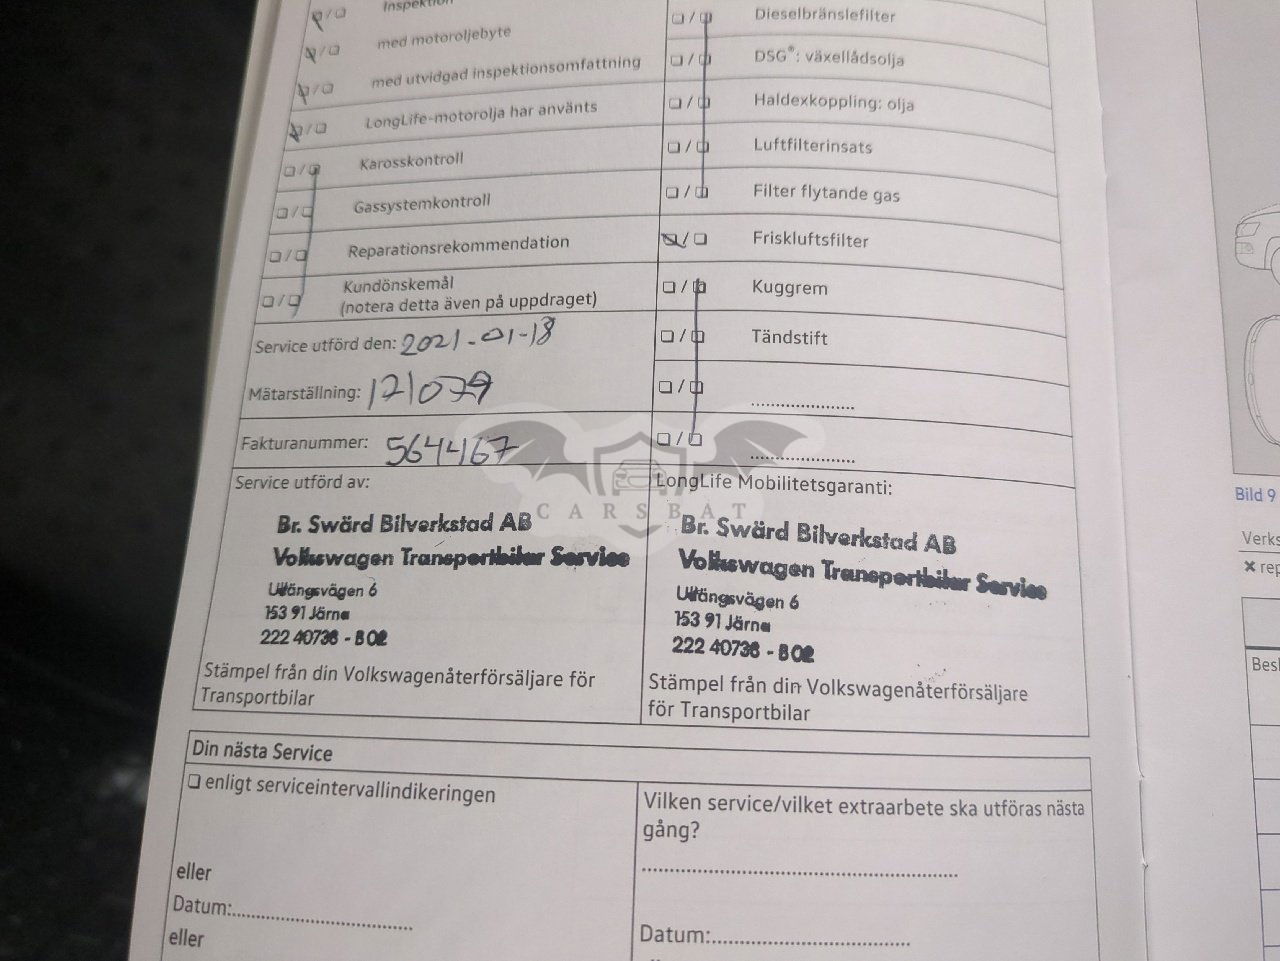 Inspektion
med motoroljebyte
med utvidgad inspektionsomfattning
LongLife-motorolja har använts
Karosskontroll
Gassystemkontroll
Reparationsrekommendation
Kundönskemål
(notera detta även på uppdraget)
Service utförd den: 2021-01-18
Mätarställning: 121079
Fakturanummer: 564467
Dieselbränslefilter
DSG®: växellådsolja
Haldexkoppling: olja
Luftfilterinsats
Filter flytande gas
Friskluftsfilter
Kuggrem
Tändstift
CARSBAT
Service utförd av:
Br. Swärd Bilverkstad AB
Volkswagen Transportbilar Service
Ullängsvägen 6
153 91 Järna
222 40736 - B02
Stämpel från din Volkswagenåterförsäljare för
Transportbilar
LongLife Mobilitetsgaranti:
Br. Swärd Bilverkstad AB
Volkswagen Transportbilar Service
Ullängsvägen 6
153 91 Järna
222 40736 - B02
Stämpel från din Volkswagenåterförsäljare
för Transportbilar
Din nästa Service
enligt serviceintervallindikeringen
eller
Datum:
eller
Vilken service/vilket extraarbete ska utföras nästa
gång?
Datum:
Bild 9